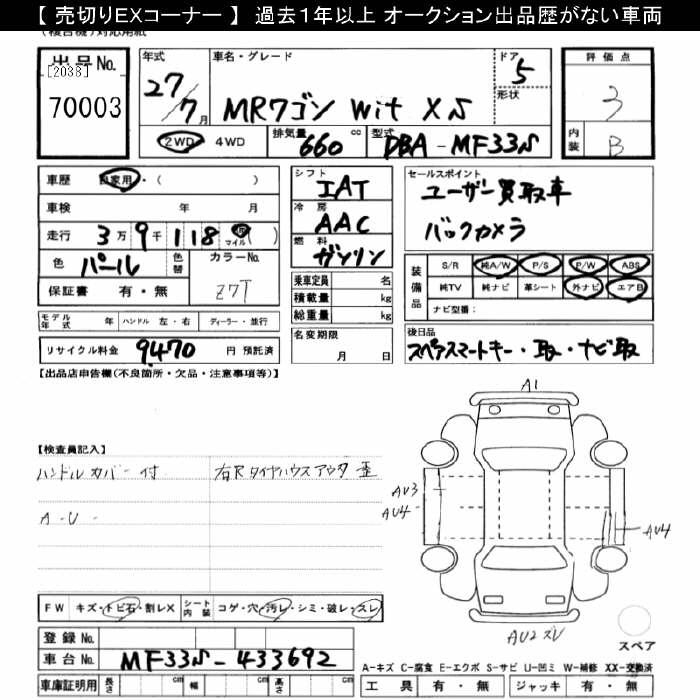 【 売切りEXコーナー 】 過去１年以上 オークション出品歴がない車両
(複合機)対応用紙
出品No. [2038] 70003
年式 27/7月
車名・グレード MRワゴン Wit XS
ドア 5
形状
2WD 4WD
排気量 660 cc
型式 DBA-MF33S
評価点 3
内装 B
車歴 自家用・( )
車検 年 月
走行 3万9千118 マイル( )
色 パール 色替
カラーNo. Z7T
保証書 有・無
シフト IAT
冷房 AAC
燃料 ガソリン
乗車定員 名
積載量 kg
総重量 kg
セールスポイント
ユーザー買取車
バックカメラ
装備品 S/R 純A/W P/S P/W ABS
純TV 純ナビ 革シート 外ナビ エアB
ナビ型番：
モデル年式 年 ハンドル 左・右 ディーラー・並行
名変期限 月 日
後日品
スペアスマートキー・取・ナビ取
リサイクル料金 9470 円 預託済
【出品店申告欄(不良箇所・欠品・注意事項等)】
【検査員記入】
ハンドルカバー付
右Rタイヤハウスアウタ歪
A-U-
A1
AU3
AU4
AU4
AU2ズレ
スペア
FW キズ・トビ石・割レX
シート内装 コゲ・穴・汚レ・シミ・破レ・スレ
登録No.
車台No. MF33S-433692
A-キズ C-腐食 E-エクボ S-サビ U-凹ミ W-補修 XX-交換済
車庫証明用 長さ cm 幅 cm 高さ cm
工具 有・無 ジャッキ 有・無